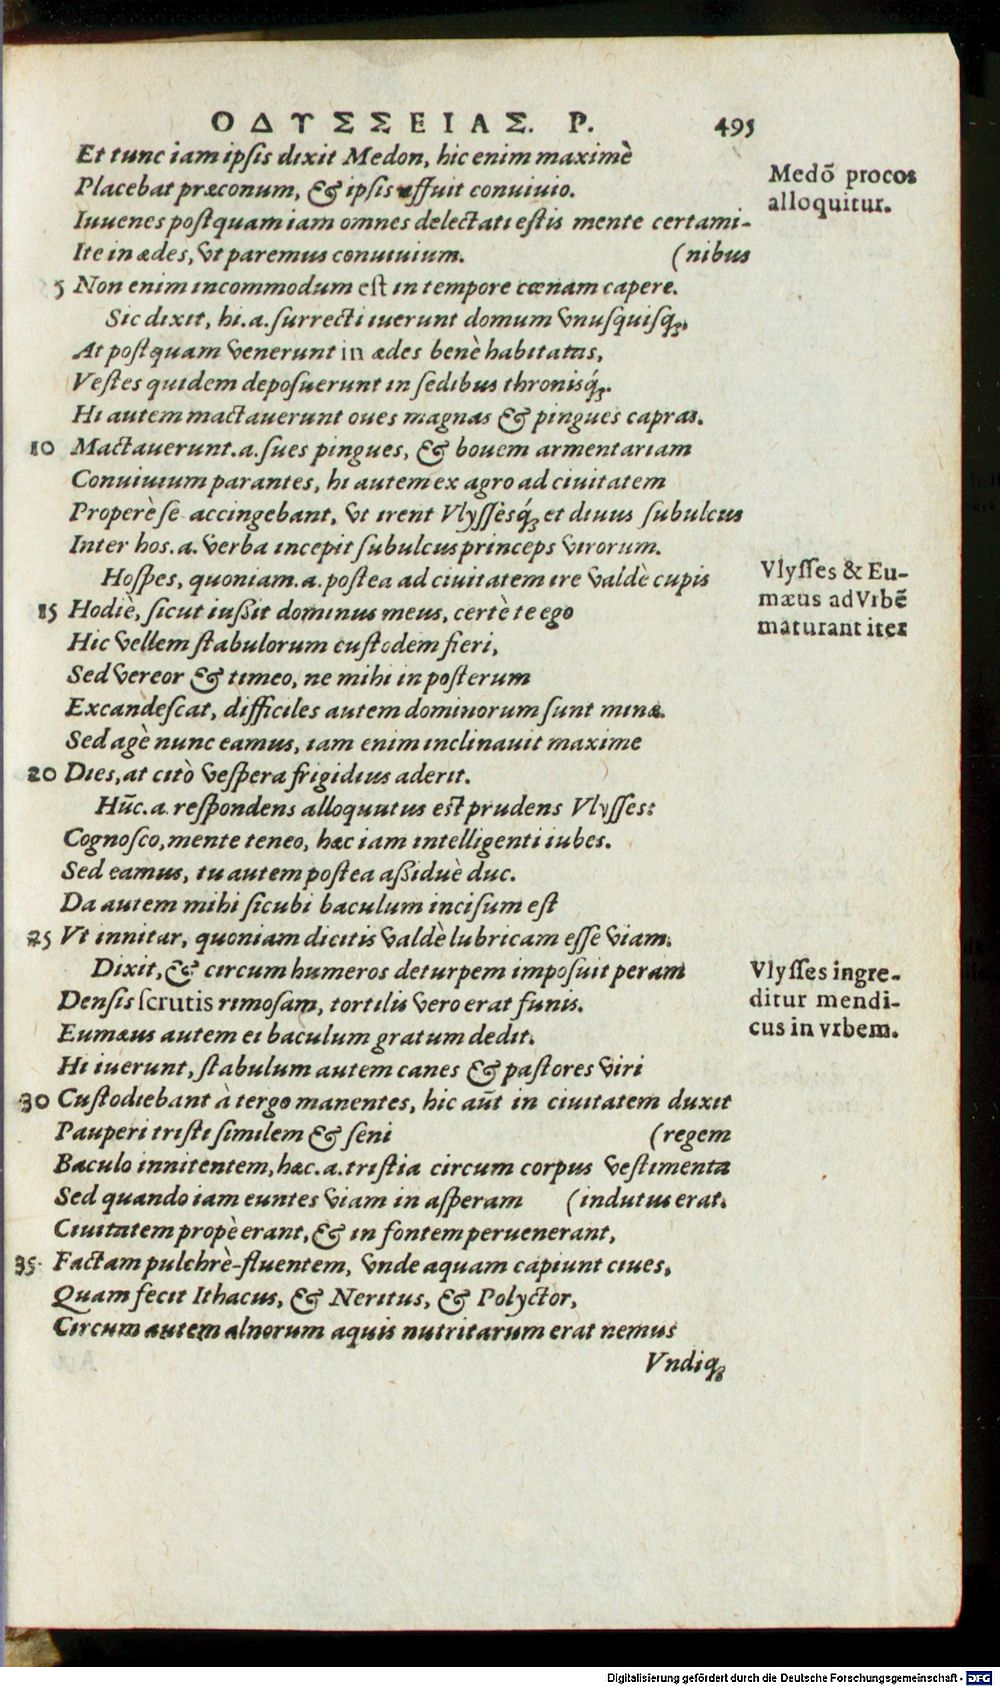 ΟΔΥΣΣΕΙΑΣ. Ρ. 495
Et tunc iam ipsis dixit Medon, hic enim maximè
Placebat præconum, & ipsis affuit conuiuio.
Medõ procos
alloquitur.
Iuuenes postquam iam omnes delectati estis mente certami-
Ite in ædes, vt paremus conuiuium. (nibus
5 Non enim incommodum est in tempore cœnam capere.
Sic dixit, hi.a. surrecti iuerunt domum vnusquisq;,
At postquam venerunt in ædes benè habitatas,
Vestes quidem deposuerunt in sedibus thronisq́;.
Hi autem mactauerunt oues magnas & pingues capras.
10 Mactauerunt.a. sues pingues, & bouem armentariam
Conuiuium parantes, hi autem ex agro ad ciuitatem
Properè se accingebant, vt irent Vlyssèsq́; et diuus subulcus
Inter hos.a. verba incepit subulcus princeps virorum.
Hospes, quoniam.a. postea ad ciuitatem ire valdè cupis
Vlysses & Eu-
mæus ad Vrbẽ
maturant iter
15 Hodiè, sicut iußit dominus meus, certè te ego
Hic vellem stabulorum custodem fieri,
Sed vereor & timeo, ne mihi in posterum
Excandescat, difficiles autem dominorum sunt minæ.
Sed agè nunc eamus, iam enim inclinauit maxime
20 Dies, at citò vespera frigidius aderit.
Hũc.a. respondens alloquutus est prudens Vlysses:
Cognosco, mente teneo, hæc iam intelligenti iubes.
Sed eamus, tu autem postea aßiduè duc.
Da autem mihi sicubi baculum incisum est
25 Vt innitar, quoniam dicitis valdè lubricam esse viam.
Dixit, & circum humeros deturpem imposuit peram
Vlysses ingre-
ditur mendi-
cus in vrbem.
Densis scrutis rimosam, tortilis vero erat funis.
Eumæus autem ei baculum gratum dedit.
Hi iuerunt, stabulum autem canes & pastores viri
30 Custodiebant à tergo manentes, hic aũt in ciuitatem duxit
Pauperi tristi similem & seni (regem
Baculo innitentem, hæc.a. tristia circum corpus vestimenta
Sed quando iam euntes viam in asperam (indutus erat.
Ciuitatem propè erant, & in fontem peruenerant,
35 Factam pulchrè-fluentem, vnde aquam capiunt ciues,
Quam fecit Ithacus, & Neritus, & Polyctor,
Circum autem alnorum aquis nutritarum erat nemus
Vndiq;
Digitalisierung gefördert durch die Deutsche Forschungsgemeinschaft - DFG